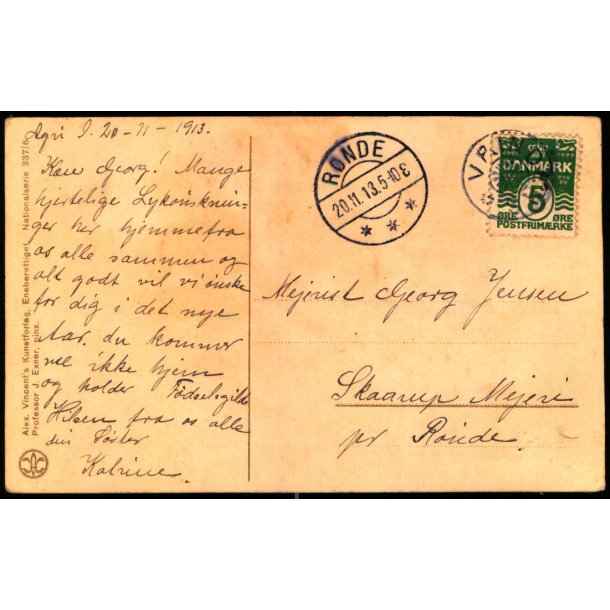 Agri D. 20-11-1913.
Kære Georg! Mange
hjertelige Lykønsknin-
ger her hjemmefra
os alle sammen og
alt godt vil vi ønske
for dig i det nye
Aar. du kommer
vel ikke hjem
og holder Fødselsgilde
Hilsen fra os alle
din Søster
Katrine.
RØNDE
20.11.13.5-10E
VP
DANMARK
5
ØRE ØRE
POSTFRIMÆRKE
Mejerist Georg Jensen
Skaarup Mejeri
pr Rønde.
Alex. Vincent's Kunstforlag, Eneberettiget. Nationalserie 337/6
Professor J. Exner, pinx.